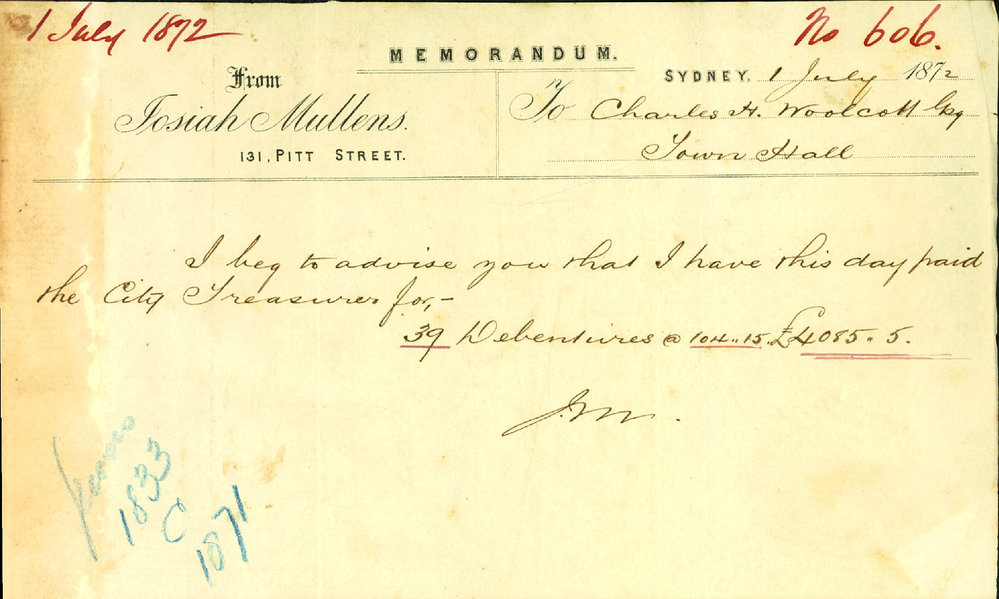 1 July 1872
No 606.
MEMORANDUM.
From
Josiah Mullens.
131, PITT STREET.
SYDNEY, 1 July 1872
To Charles H. Woolcott Esq
Town Hall
I beg to advise you that I have this day paid
the City Treasurer for,-
39 Debentures @ 104..15. £4085..5.
J.M.
1833
C
1871